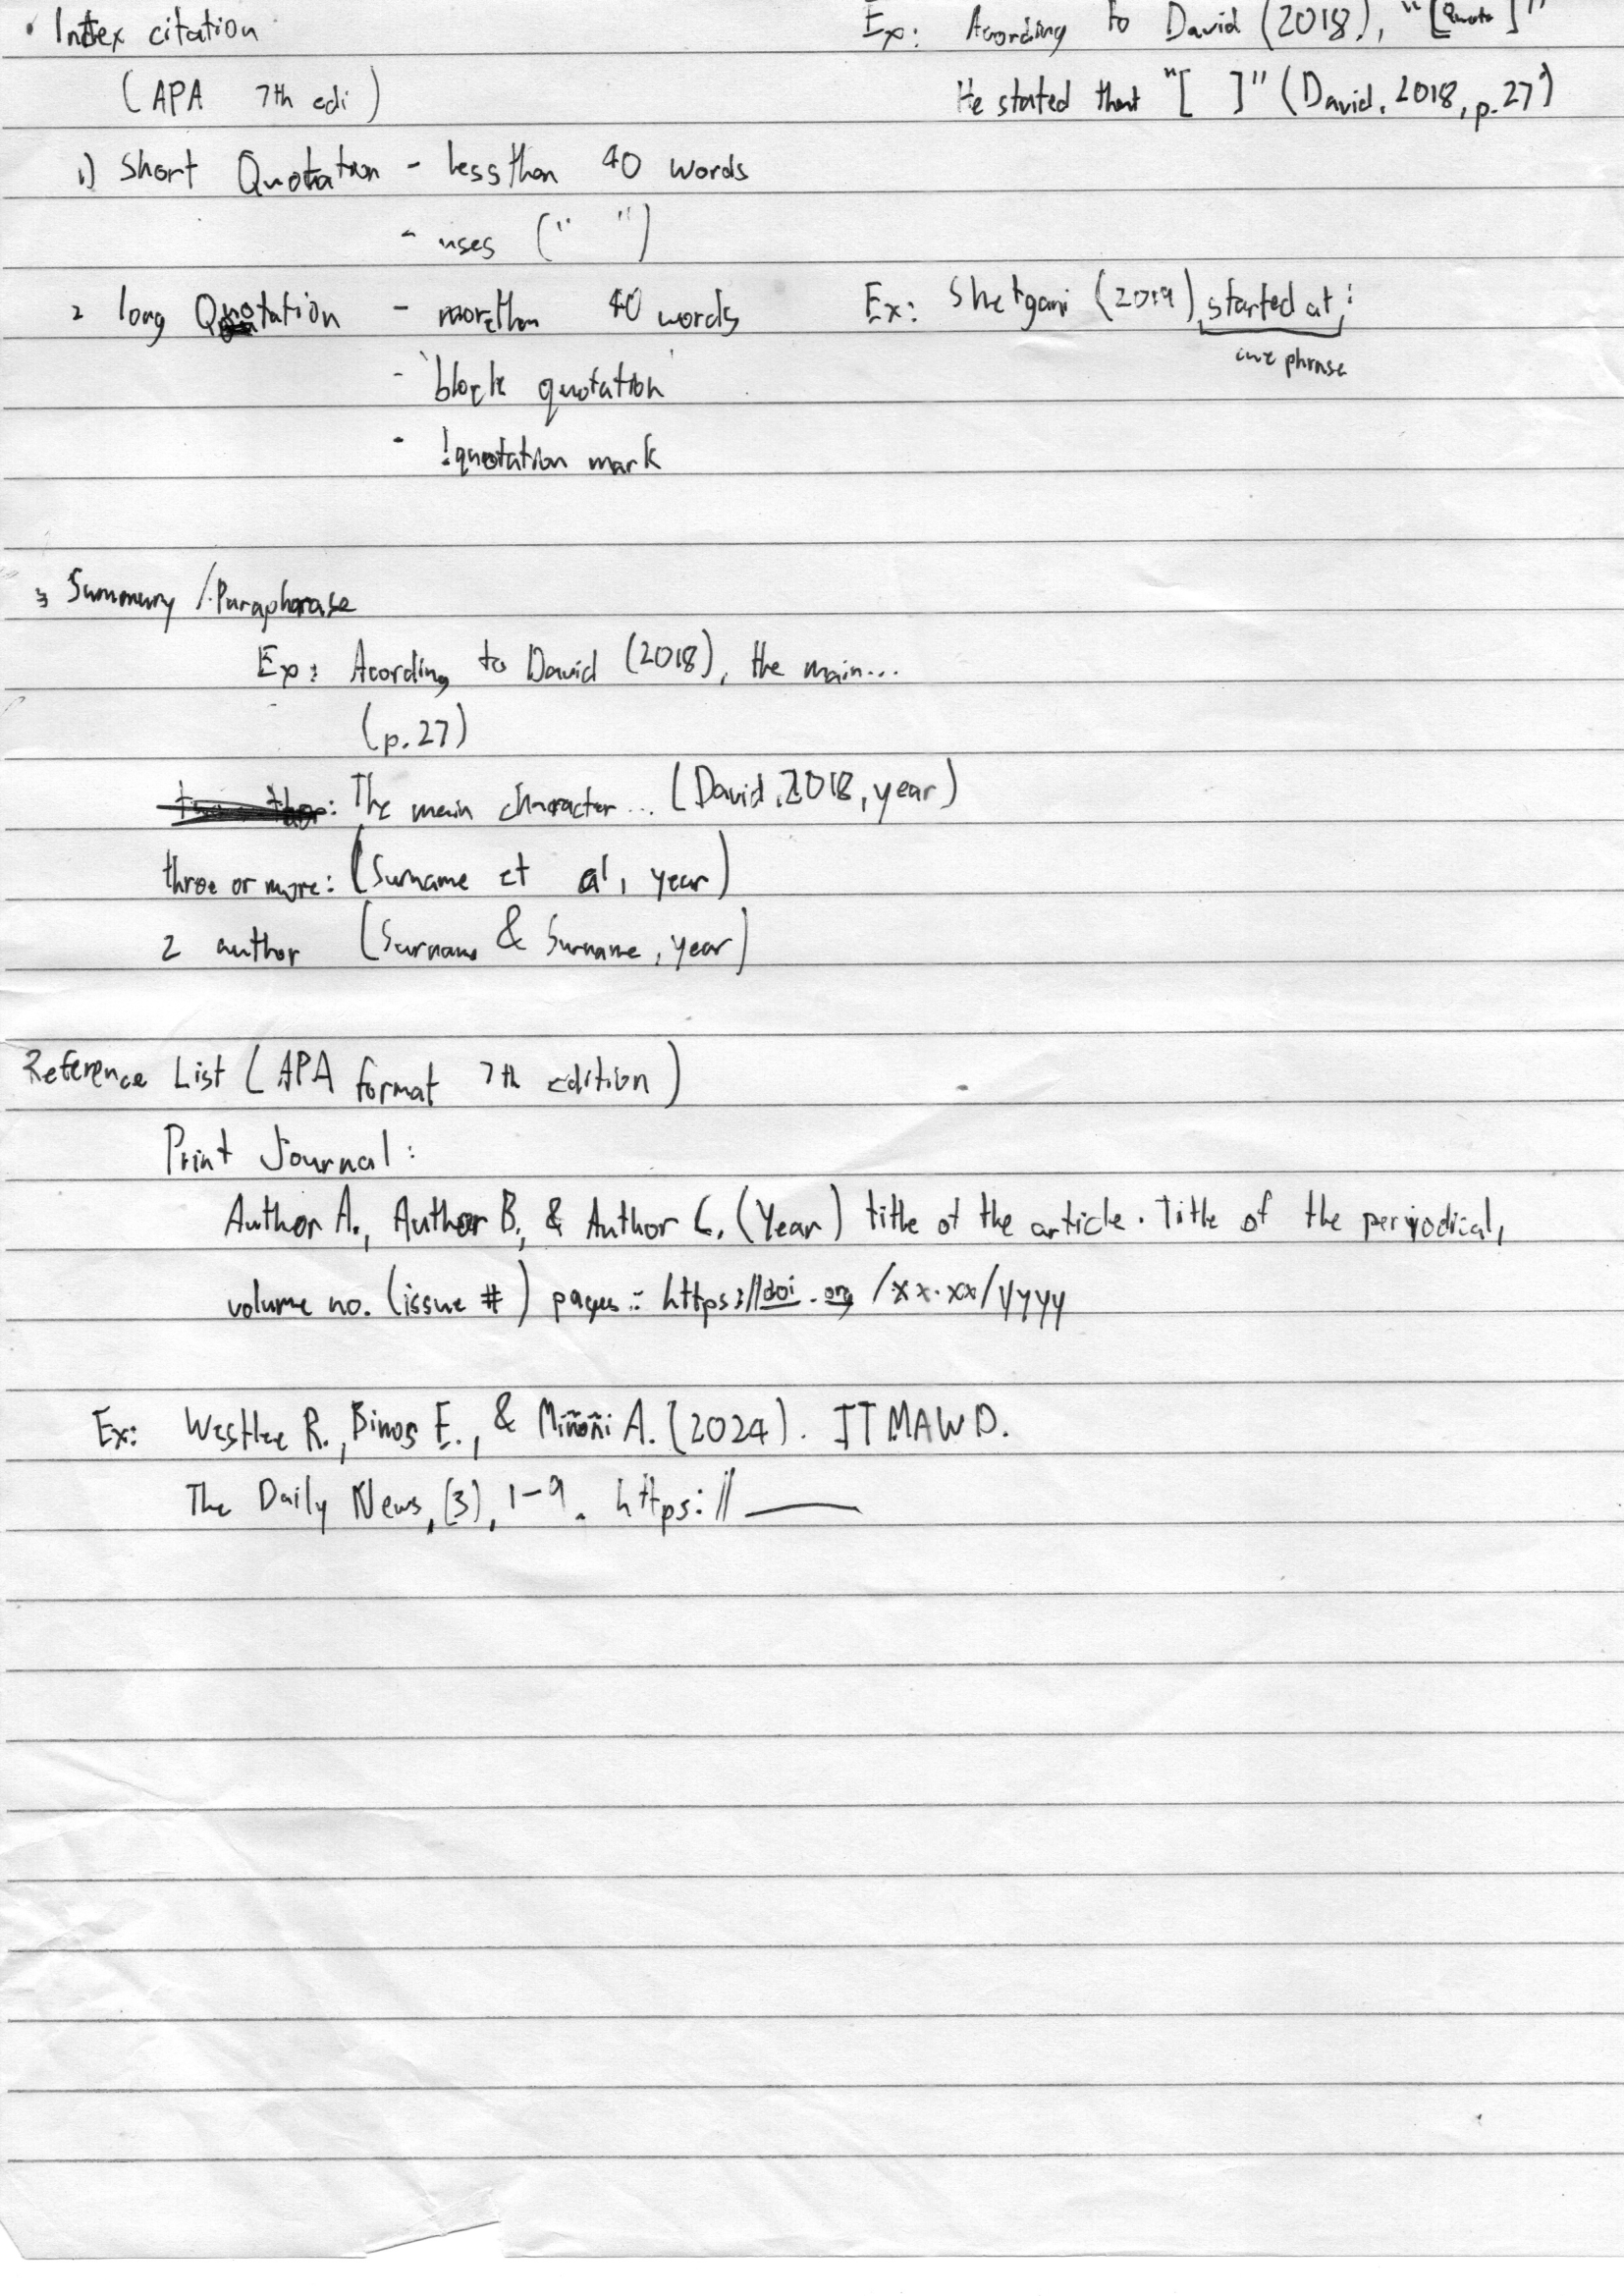 • Intex citation
Ex: Acording to David (2018), "[Quote]"
(APA 7th edi)
He stated that "[ ]" (David, 2018, p.27)
1) Short Quotation - less than 40 words
- uses (" ")
2 long Quotation - more than 40 words
Ex: (2019), started at:
phrase
- 'block quotation'
- !quotation mark
3 Summary / Paraphrase
Ex: Acording to David (2018), the main...
(p.27)
: The main character... (David, 2018, year)
three or more: (Surname et al, year)
2 author (Surname & Surname, year)
Reference List (APA format 7th edition)
Print Journal:
Author A., Author B., & Author C. (Year) title of the article. Title of the periodical,
volume no. (issue #) pages :- https://doi.org/xx.xx/yyyy
Ex: Westlee R., Binos E., & Miñoñi A. (2024). ITMAWD.
The Daily News, (3), 1-9. https://